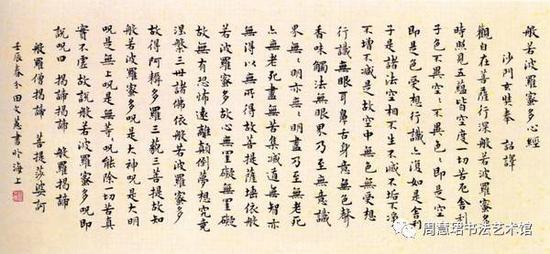 般若波羅蜜多心經
沙門玄奘奉 詔譯
觀自在菩薩行深般若波羅蜜多
時照見五蘊皆空度一切苦厄舍利
子色不異空〻不異色〻即是空〻
即是色受想行識亦復如是舍利
子是諸法空相不生不滅不垢不淨
不增不減是故空中無色無受想
行識無眼耳鼻舌身意無色聲
香味觸法無眼界乃至無意識
界無〻明亦無〻明盡乃至無老死
亦無老死盡無苦集滅道無智亦
無得以無所得故菩提薩埵依般
若波羅蜜多故心無罣礙無罣礙
故無有恐怖遠離顛倒夢想究竟
涅槃三世諸佛依般若波羅蜜多
故得阿耨多羅三藐三菩提故知
般若波羅蜜多咒是大神咒是大明
咒是無上咒是無等〻咒能除一切苦真
實不虛故說般若波羅蜜多咒即
說咒曰 揭諦揭諦 般羅揭諦
般羅僧揭諦 菩提莎婆訶
壬辰春分 田文書於海上
周慧珺书法艺术馆